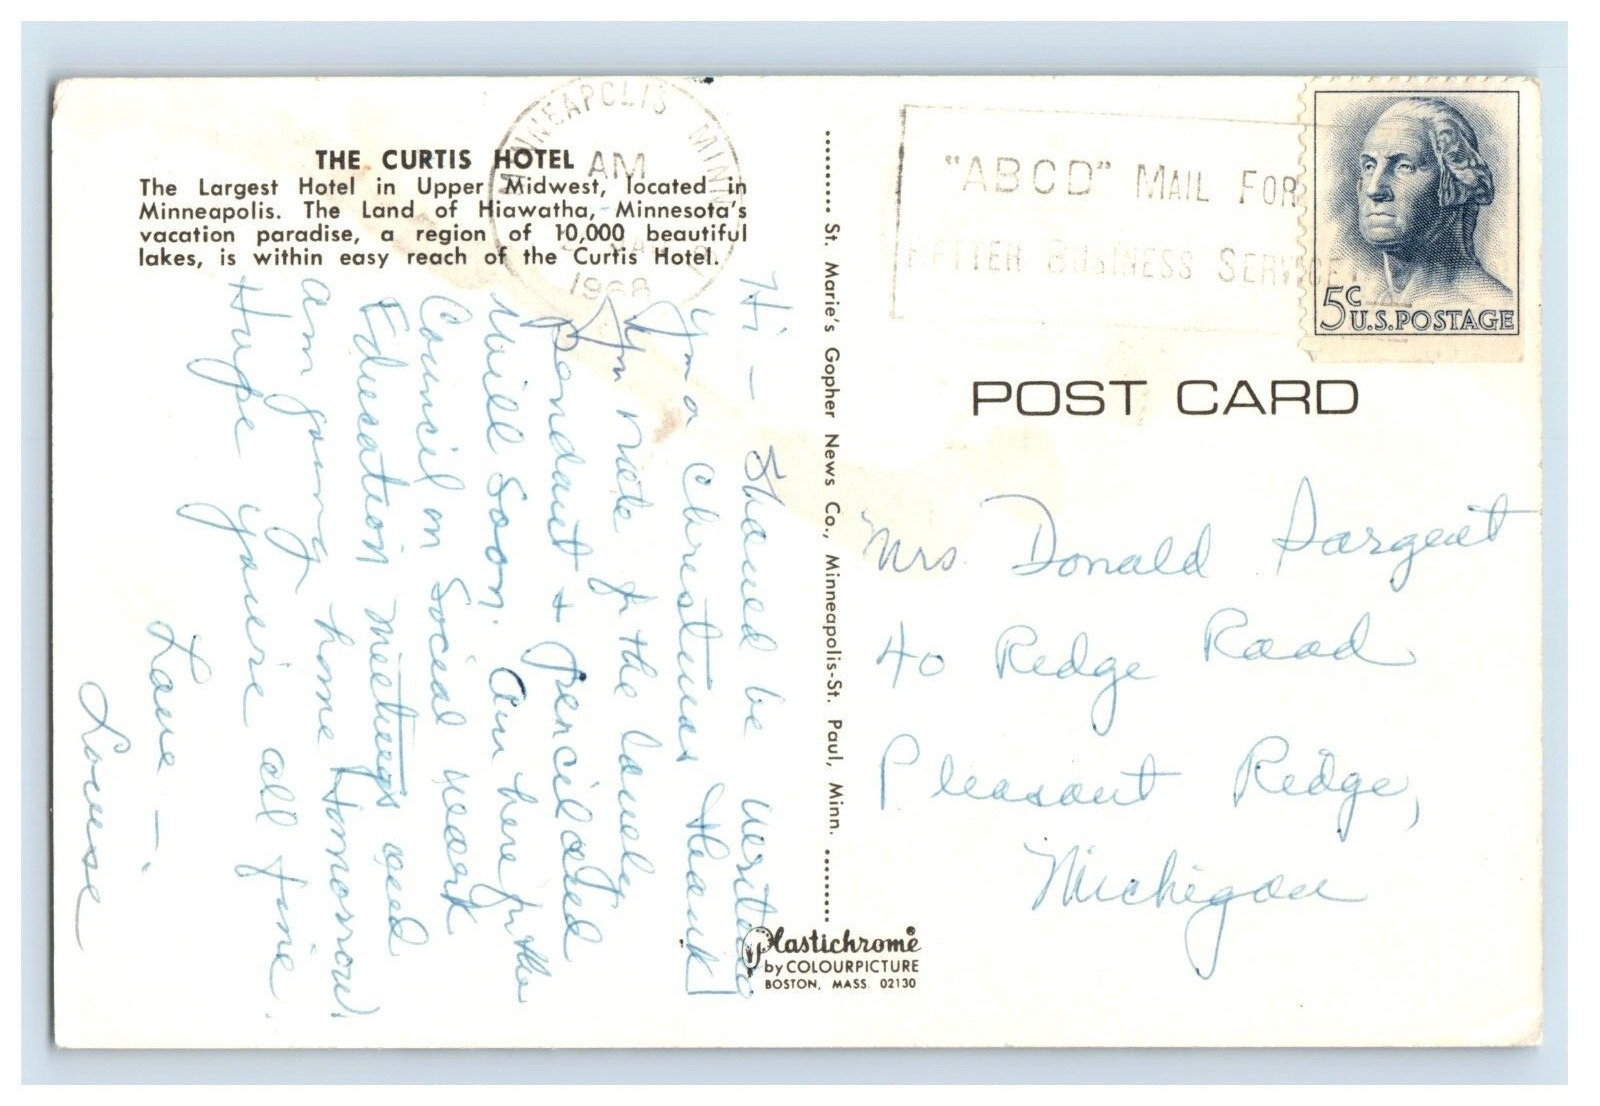 THE CURTIS HOTEL
The Largest Hotel in Upper Midwest, located in
Minneapolis. The Land of Hiawatha, Minnesota's
vacation paradise, a region of 10,000 beautiful
lakes, is within easy reach of the Curtis Hotel.
MINNEAPOLIS MINN
AM
1968
"ABCD" MAIL FOR
BETTER BUSINESS SERVICE
5c
U.S.POSTAGE
POST CARD
Hi - Should be writing
you a Christmas thank
you note for the lovely
pendant &
will soon. Am here for the
Council on Social Work
Education meetings and
am going home tomorrow!
Hope you're all fine.
Love -
Louise
St. Marie's Gopher News Co., Minneapolis-St. Paul, Minn.
Mrs. Donald Sargent
40 Ridge Road
Pleasant Ridge,
Michigan
Plastichrome®
by COLOURPICTURE
BOSTON, MASS. 02130